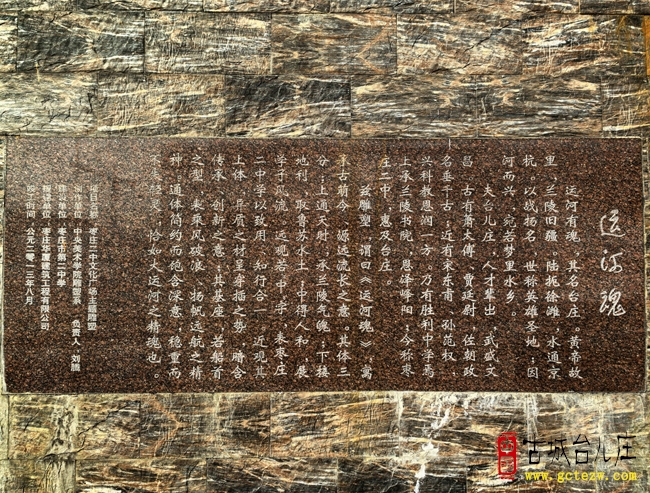 运河魂
运河有魂，其名台庄。黄帝故
里，兰陵旧疆，陆挑徐潍，水通京
杭。以战扬名，世称英雄圣地；因
河而兴，宛若梦里水乡。
夫台儿庄，人才辈出，武威文
昌。古有萧太傅，贾廷尉，佐朝政
名垂千古；近有宋东甫，孙范权，
兴科教恩润一方。乃有胜利中学焉
上承兰陵书院，恩泽峄阳；今怀枣
庄二中，惠及台庄。
兹雕塑，谓曰《运河魂》，寓
亘古前今，源远流长之意。其体三
分，上通天时，承兰陵气魄；下接
地利，取鲁苏水土；中得人和，展
学子风流。远观若中字，表枣庄
二中学以致用，知行合一，近观其
上体，异质之材呈牵插之势，暗含
传承、创新之意；其基座，若船首
之型，表乘风破浪、扬帆远航之精
神。通体简约而饱含深意，稳重而
不轻灵，恰如大运河之精魂也。
项目名称：枣庄二中文化广场主题雕塑
创作单位：中央美术学院雕塑系 负责人：刘腾
建设单位：枣庄市第二中学
捐建单位：枣庄华厦建筑工程有限公司
竣工时间：公元二〇一三年八月
古城台儿庄
www.gctezw.com